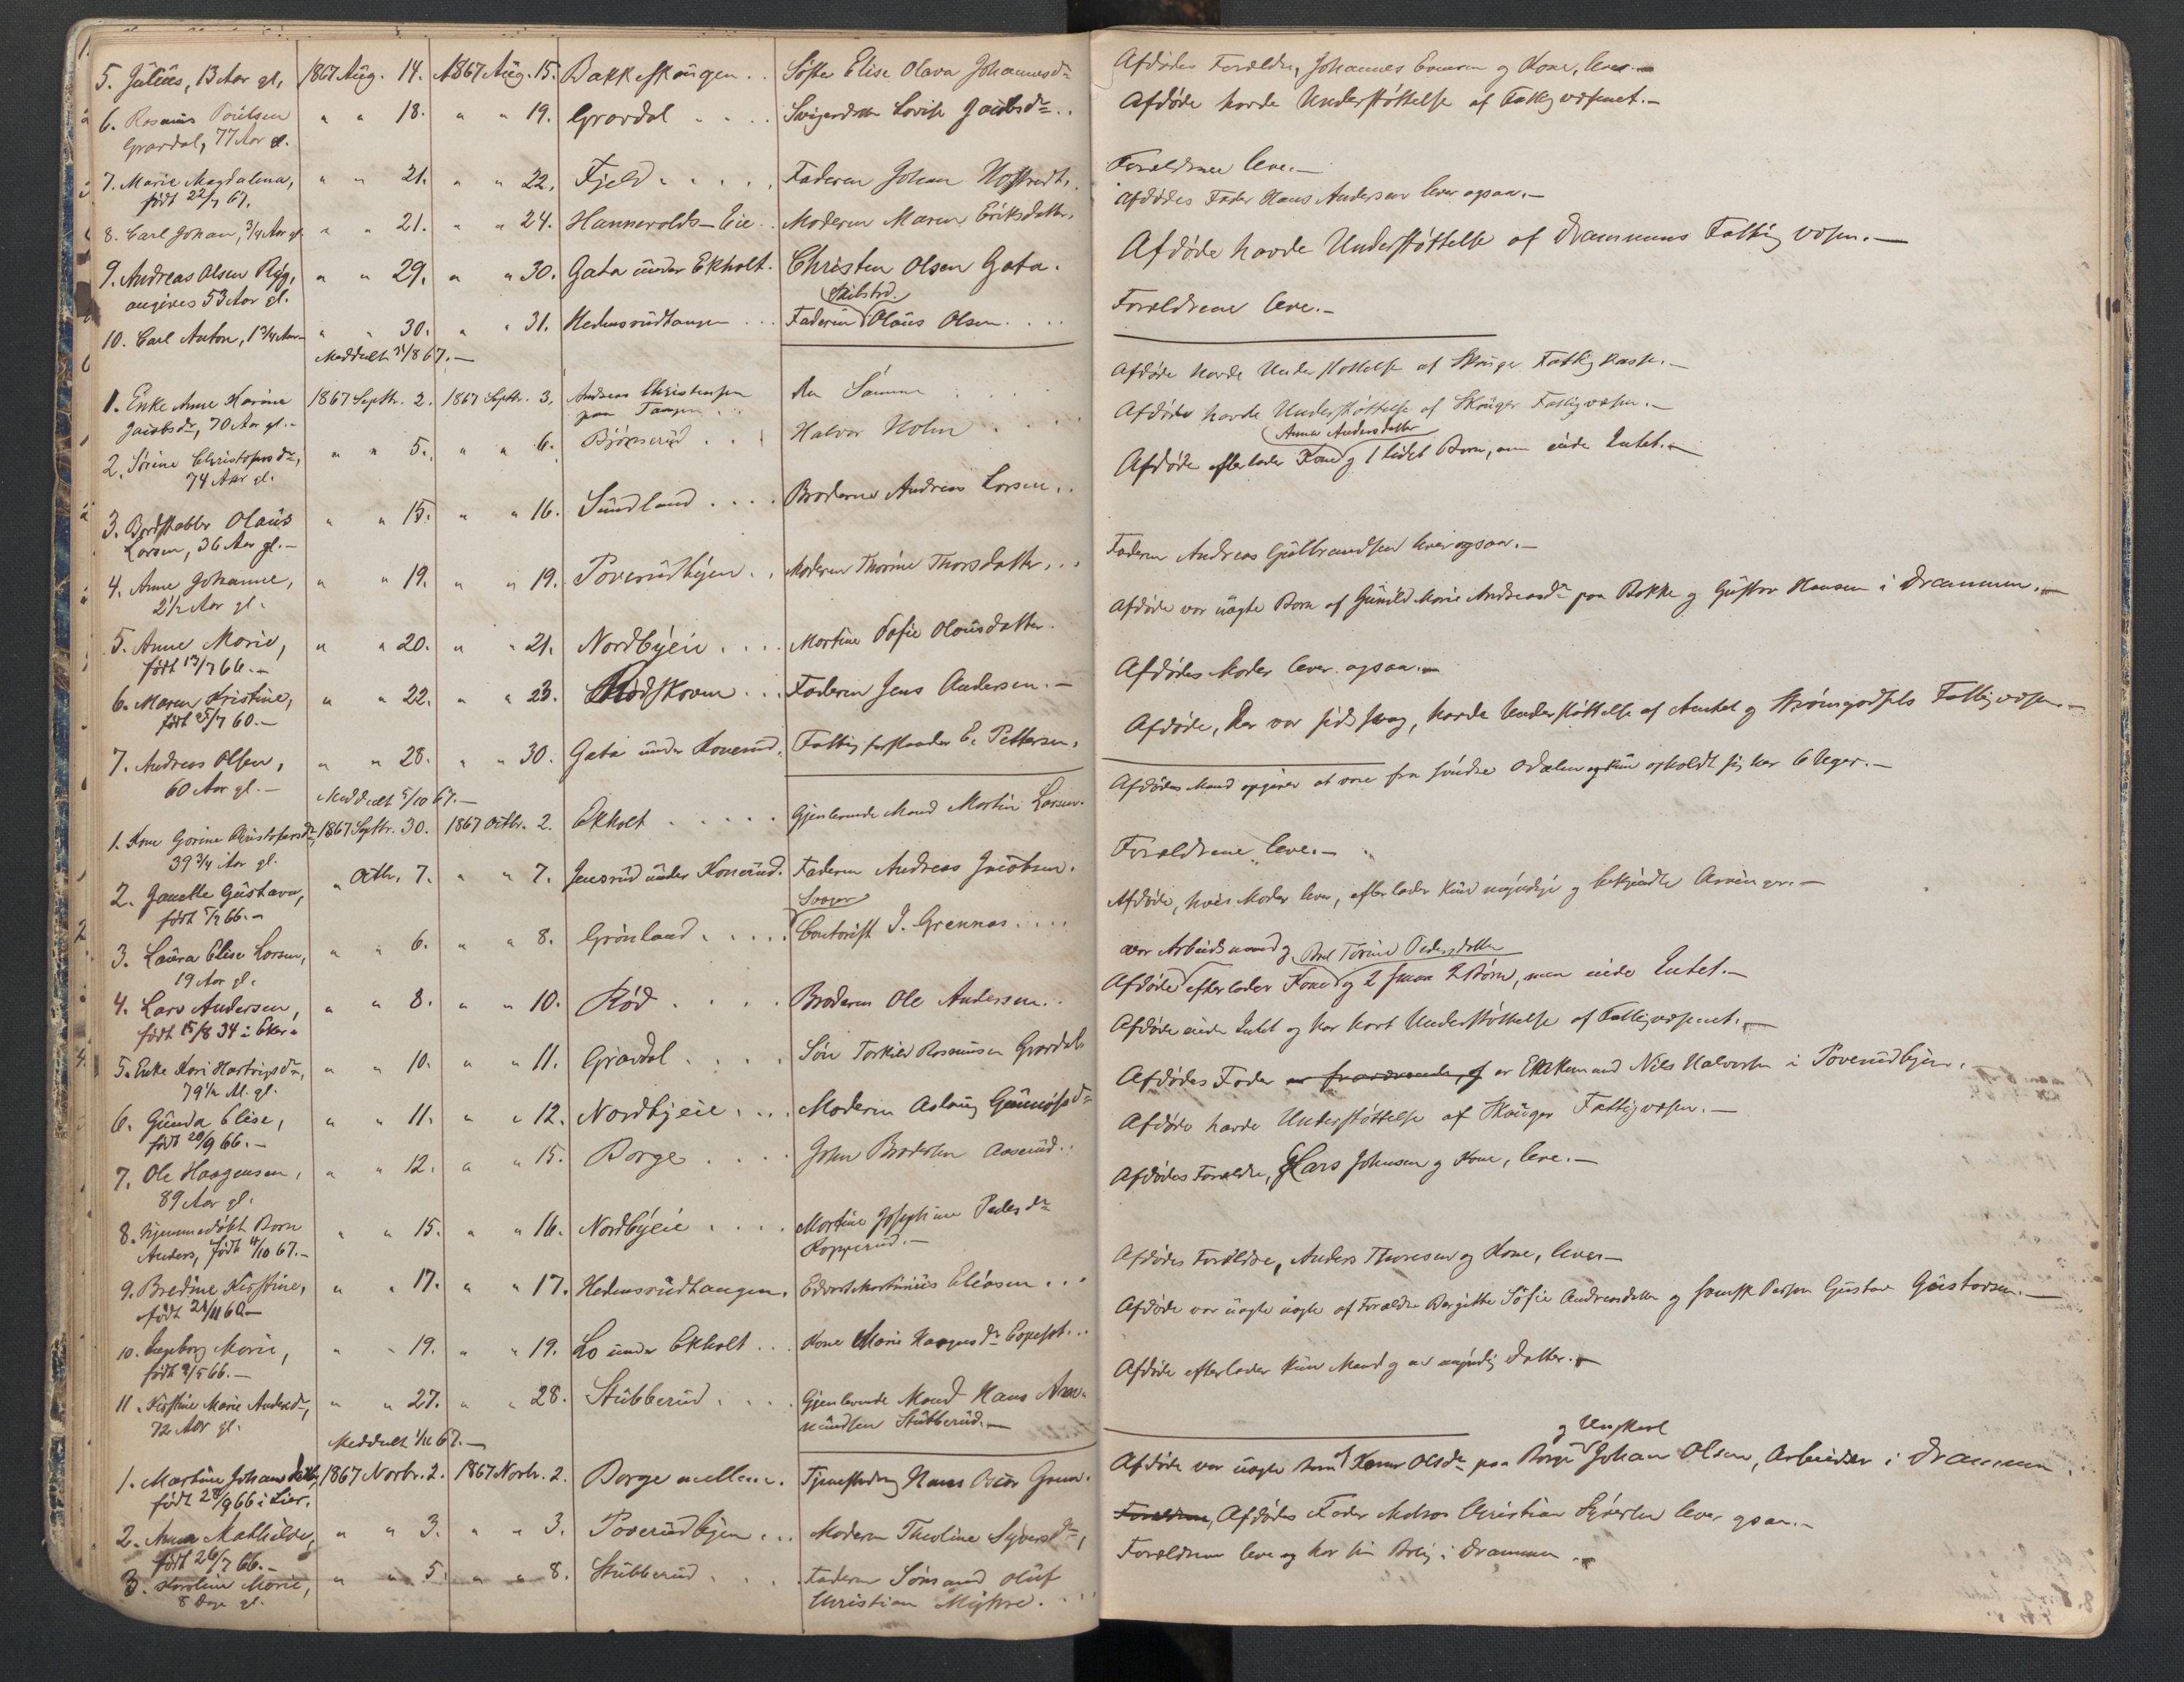 5. Julius, 13 Aar gl, 1867 Aug. 14. 1867 Aug. 15. Bakkeskaugen . . Søster Elise Olava Johannesdr
6. Rasmus Poulsen " " 18. " " 19. Gravdal . . . . Lovise Jacobsdr . .
Gravdal, 77 Aar gl.
7. Marie Magdalena, " " 21. " " 22. Fjeld . . . . . Faderen Johan
født 22/7 67.
8. Carl Johan, 3/4 Aar gl. " " 21. " " 24. Hannevolds-Eie . . Moderen Maren Eriksdatter.
9. Andreas Olsen Ryg, " " 29. " " 30. Gata under Ekholt. Christen Olsen Gata.
angives 53 Aar gl.
10. Carl Anton, 1 3/4 Aar " " 30. " " 31. Hedensrudtangen . . . Faderen Olaus Olsen . . . .
Meddeelt 31/8 67.-
1. Enke Anne Karine 1867 Septbr. 2. 1867 Septbr. 3. Andreas Christensen den Samme . . .
Jacobsdr, 70 Aar gl.- paa Tangen . .
2. Sørine Christophersdr, " " 5. " " 6. Bjørnerud . . . Halvor Holm . . . .
74 Aar gl.
3. Bordstabler Olaus " " 15. " " 16. Sundland . . . . Broderen Andreas Larsen . .
Larsen, 36 Aar gl.-
4. Anne Johanne, " " 19. " " 19. Poverudbyen . . Moderen Thorine Thorsdatter . . .
2 1/2 Aar gl.
5. Anne Marie, " " 20. " " 21. Nordbyeie . . . . Martine Sofie Olausdatter.
født 13/7 66.-
6. Maren Kristine, " " 22. " " 23. Rødskoven . . . Faderen Jens Andersen.-
født 25/7 60.-
7. Andreas Olsen, " " 28. " " 30. Gata under Konerud. Fattigforstander E. Pettersen.
60 Aar gl.-
Meddeelt 5/10 67.-
1. Kone Gorine Christophersdr, 1867 Septbr. 30. 1867 Octbr. 2. Ekholt . . . . . Gjenlevende Mand Martin Larsen.
39 3/4 Aar gl.
2. Janette Gustava, " Octbr. 7. " " 7. Jensrud under Konerud. Faderen Andreas Jacobsen.
født 5/2 66.-
Svoger
3. Laura Elise Larsen, " " 6. " " 8. Grønland . . . . Contorist J. Grennes . . . .
19 Aar gl.
4. Lars Andersen, " " 8. " " 10. Rød . . . . Broderen Ole Andersen . .
født 15/8 34 i Eker.
5. Enke Kari Hartvigsdr, " " 10. " " 11. Gravdal . . . . Søn Torkild Rasmusen Gravdal
79 1/2 A. gl.
6. Gunda Elise, " " 11. " " 12. Nordbyeie . . . Moderen Aslaug
født 20/9 66.-
7. Ole Haagensen, " " 12. " " 15. Borge . . . . John Brodersen Aaserud . .
89 Aar gl.
8. Hjemmedøbt Barn " " 15. " " 16. Nordbyeie . . . . Martine Josephine Pedersdr
Anders, født 4/10 67.- Kopperud.-
9. Bredine Kirstine, " " 17. " " 17. Hedensrudtangen. Edvart Martinius Eliasen . . .
født 21/11 60.-
10. Ingeborg Marie, " " 19. " " 19. Lo under Ekholt . . . Kone Marie Haagensdr
født 9/5 66.-
11. Kirstine Marie Andersdr, " " 27. " " 28. Stubberud . . . . Gjenlevende Mand Hans Am-
72 Aar gl. undsen Stubberud.-
Meddeelt 1/11 67.-
1. Martine Johansdatter, 1867 Novbr. 2. 1867 Novbr. 2. Borge mellem. Hans
født 28/9 66 i Lier.
2. Anna Mathilde, " " 3. " " 3. Poverudbyen . . . Moderen Theoline Syversdr,
født 26/7 66.-
3. Karoline Marie, " " 5. " " 8. Stubberud . . . . Faderen Sømand Oluf
8 Dage gl. Christian Myhre. . . .
Afdødes Forældre, Johannes Evensen og Kone, leve.-
Afdøde havde Understøttelse af Fattigvæsenet.-
Forældrene leve.-
Afdødes Fader Hans Andersen lever ogsaa.-
Afdøde havde Understøttelse af Drammens Fattigvæsen.-
Forældrene leve.-
Afdøde havde Understøttelse af Skouger Fattigkasse.-
Afdøde havde Understøttelse af Skouger Fattigvæsen.-
Anne Andersdatter
Afdøde efterlader Kone og 1 lidet Barn, men eiede Intet.-
Faderen Andreas Gulbrandsen lever ogsaa.-
Afdøde var uægte Barn af Gunild Marie Andreasdr paa Bakke og Gustav Hansen i Drammen.-
Afdødes Moder lever ogsaa.-
Afdøde, der var sindssvag, havde Understøttelse af Amtet og Strømsgodsets Fattigvæsen.-
Afdødes Mand opgiver at være fra søndre Odalen og kun opholdt sig her 6 Uger.-
Forældrene leve.-
Afdøde, hvis Moder lever, efterlader kun myndige og bekjendte Arvinger.-
var Arbeidsmand og Pedersdatter
Afdøde efterlader Kone og 2 smaa Børn, men eiede Intet.-
Afdøde eiede Intet og har havt Understøttelse af Fattigvæsenet.-
Afdødes Fader er fraværende, og er Enkemand Nils Halvorsen i Poverudbyen.
Afdøde havde Understøttelse af Skouger Fattigvæsen.-
Afdødes Forældre, Lars Johnsen og Kone, leve.-
Afdødes Forældre, Anders Thoresen og Kone, leve.-
Afdøde var uægte af Forældre Bergitte Sofie Andreasdatter og svensk Person Gustav Gustavsen.-
Afdøde efterlader kun Mand og en myndig Datter.-
og Ungkarl
Afdøde var uægte Barn af Karen Olsdr paa Borge Johan Olsen, Arbeider i Drammen.
Forældrene, Afdødes Fader Matros Christian Syversen lever ogsaa.-
Forældrene leve og har sin Bolig i Drammen.-